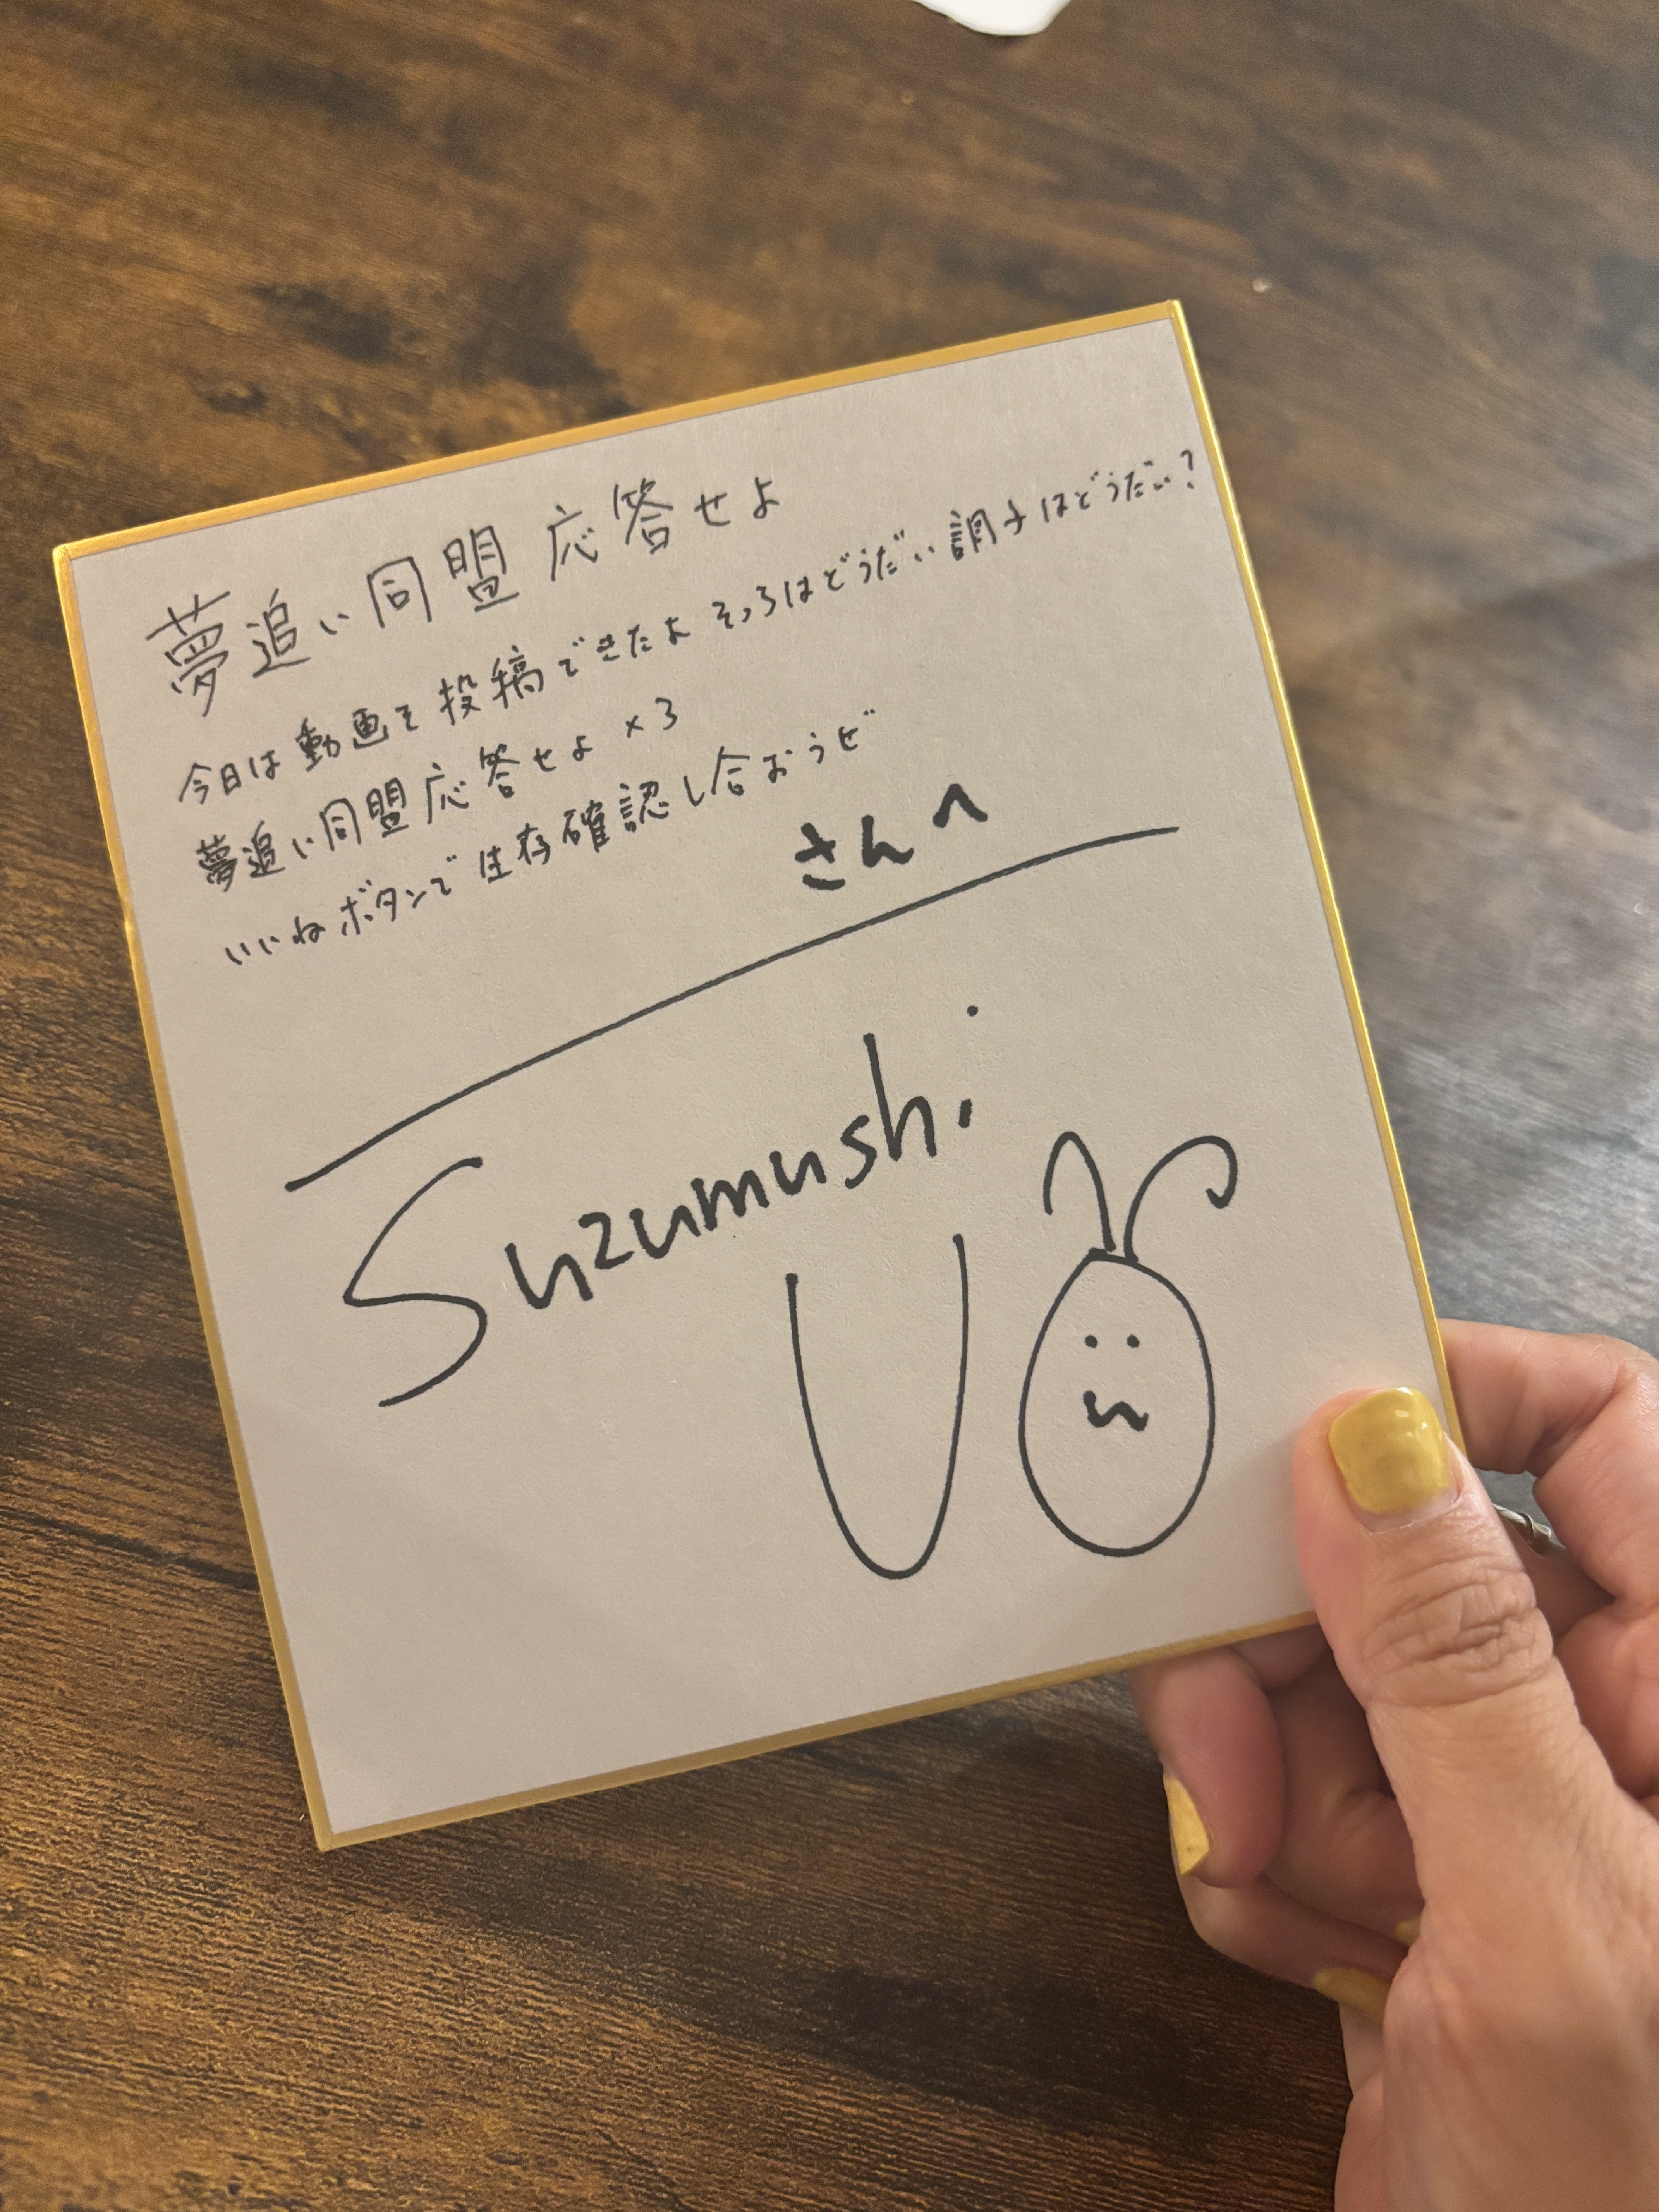 夢追い同盟 応答せよ
今日は動画を投稿できたよ そっちはどうだい 調子はどうだい?
夢追い同盟 応答せよ ×3
いいねボタンで生存確認し合おうぜ
さんへ
Suzumushi
U